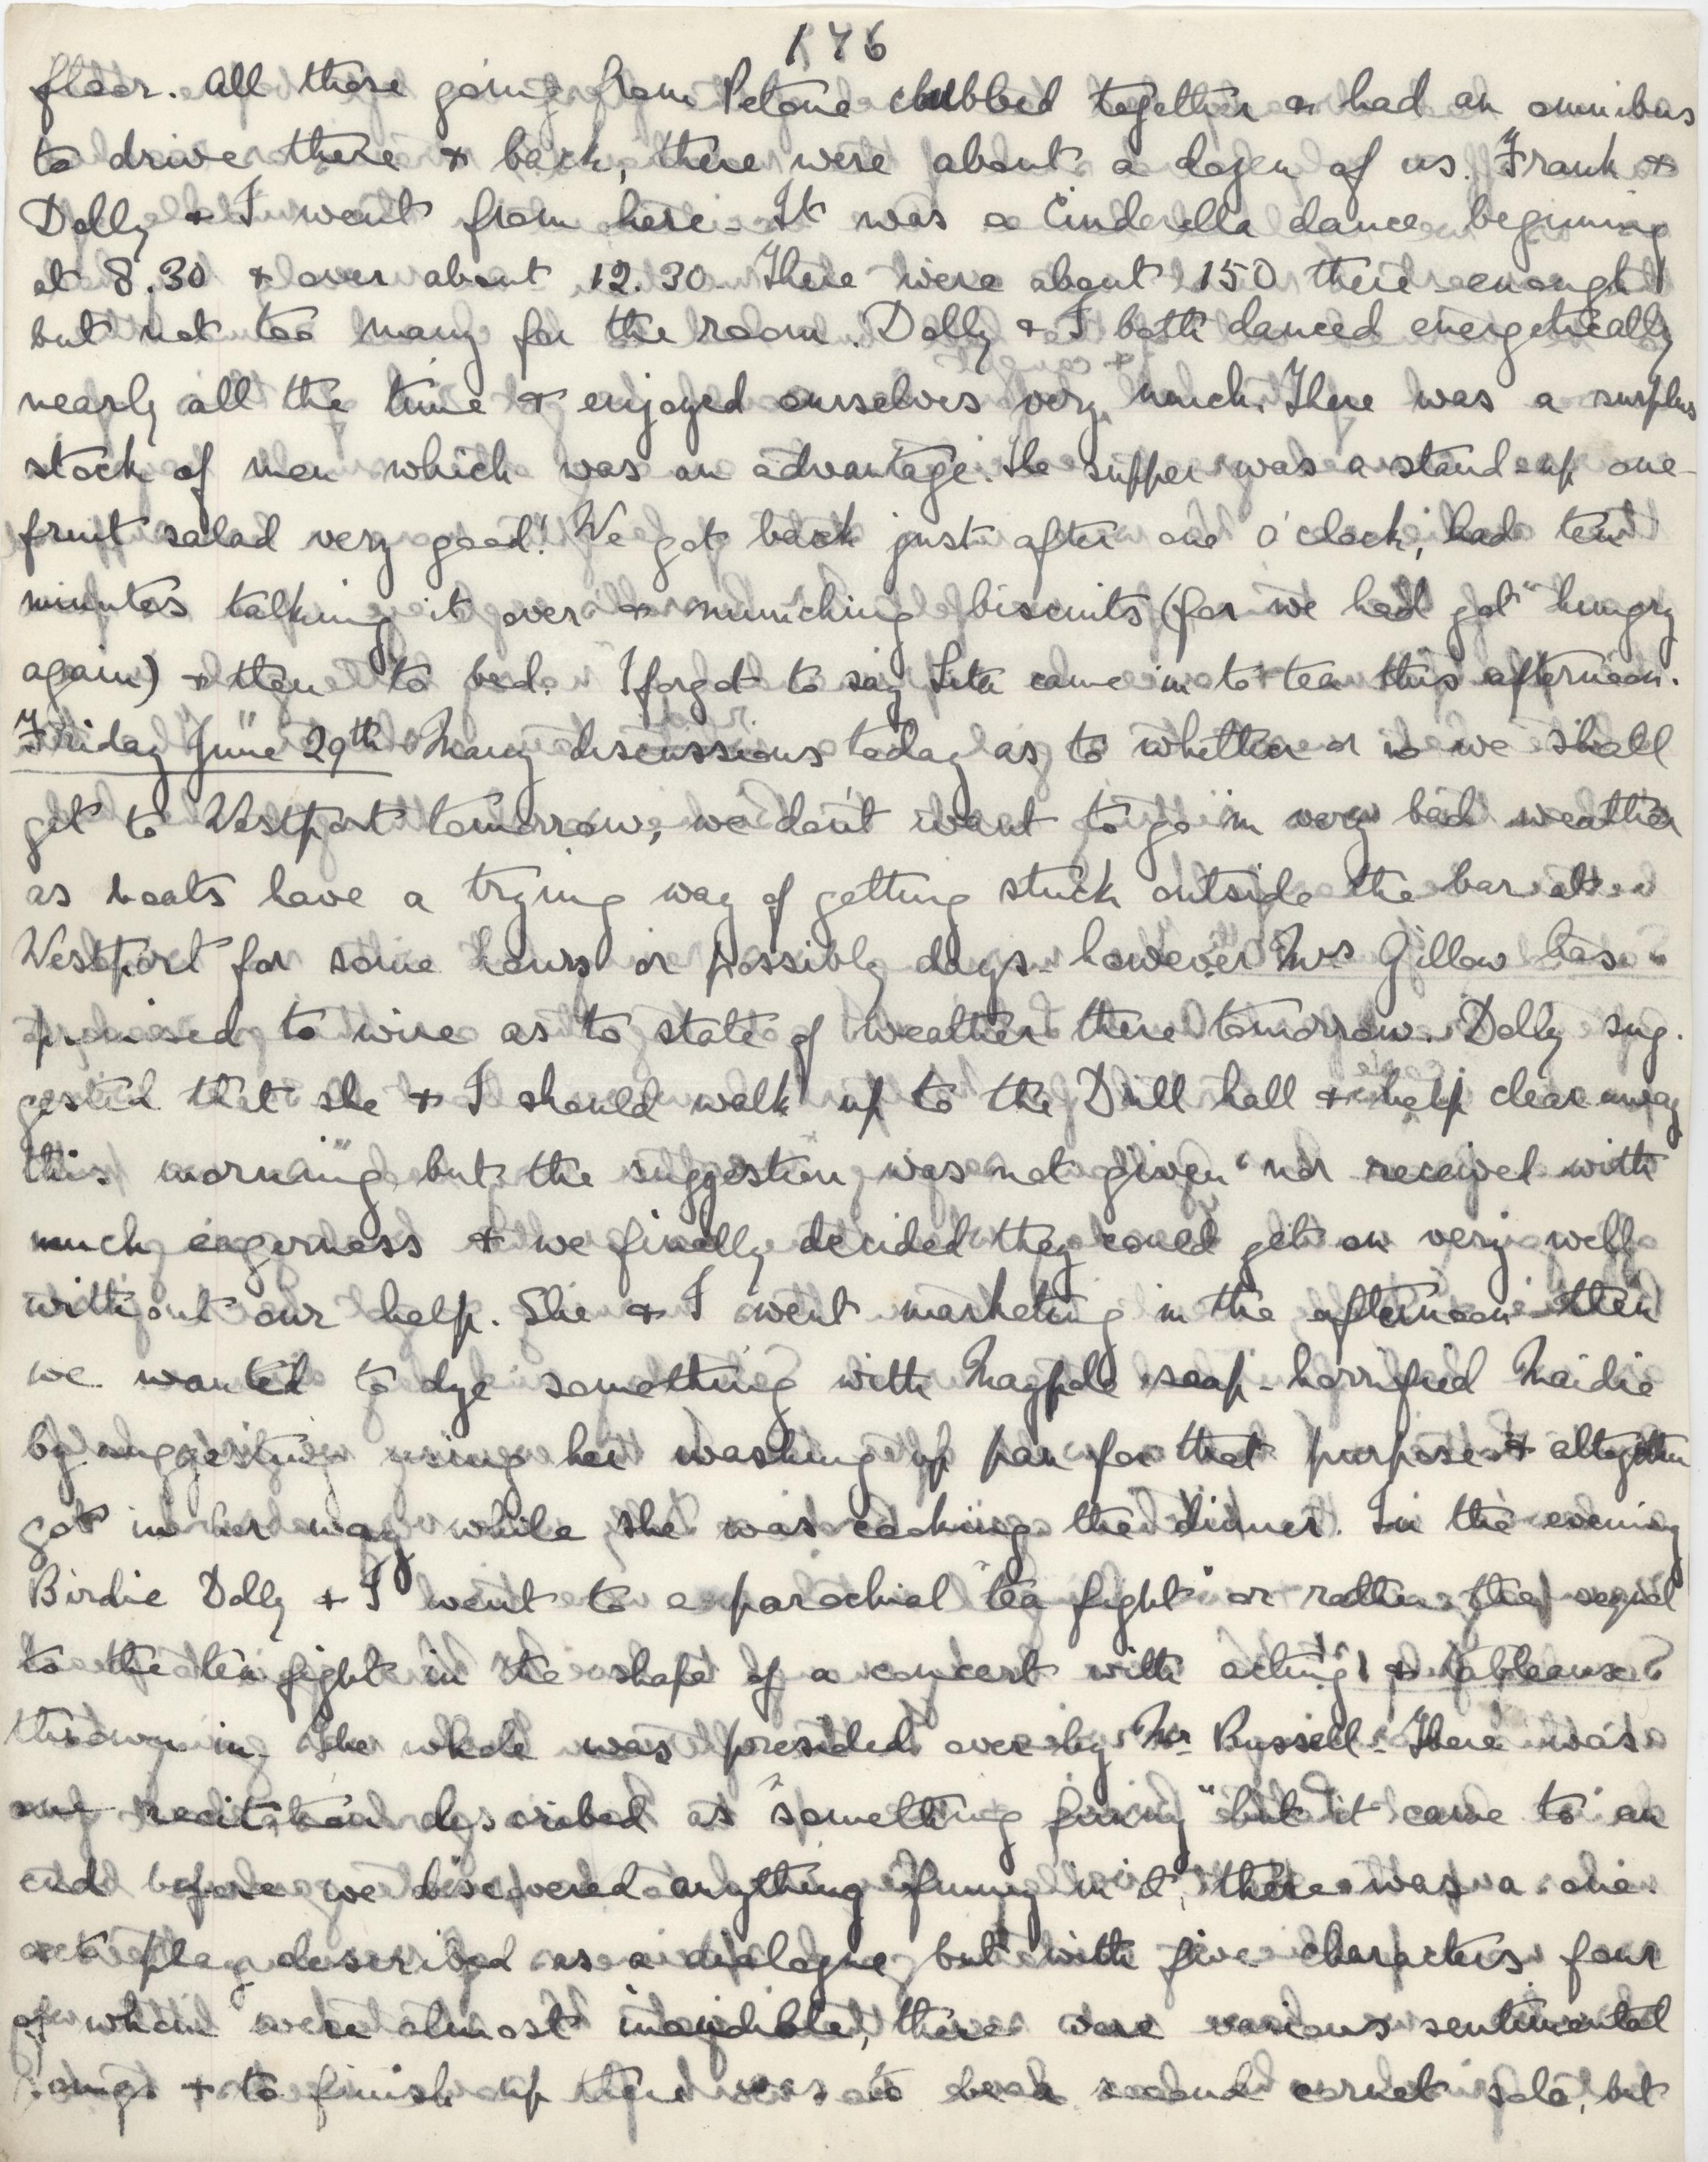 176
floor. All those going from Petone clubbed together & had an omnibus
to drive there & back, there were about a dozen of us. Frank &
Dolly & I went from here. It was a Cinderella dance beginning
at 8.30 & over about 12.30. There were about 150 there enough
but not too many for the room. Dolly & I both danced energetically
nearly all the time & enjoyed ourselves very much. There was a surplus
stock of men which was an advantage. The supper was a stand-up one -
fruit salad very good! We got back just after one o'clock, had ten
minutes talking it over & munching biscuits (for we had got hungry
again) & then to bed. I forgot to say Lita came in to tea this afternoon.
Friday June 29th Many discussions today as to whether or no we shall
get to Westport tomorrow, we don't want to go in very bad weather
as boats have a trying way of getting stuck outside the bar at
Westport for some hours or possibly days - however Mrs Gillow has
promised to wire as to state of weather there tomorrow. Dolly sug-
gested that she & I should walk up to the Drill hall & help clear away
this morning but the suggestion was not given nor received with
much eagerness & we finally decided they could get on very well
without our help. She & I went marketing in the afternoon then
we wanted to dye something with Maypole soap - horrified Maidie
by suggesting using her washing up pan for that purpose & altogether
got in her way while she was cooking the dinner. In the evening
Birdie Dolly & I went to a parochial "tea fight" or rather the sequel
to the tea fight in the shape of a concert with acting & tableaux
thrown in. The whole was presided over by Mr Russell. There was
one recitation described as "something funny" but it came to an
end before we discovered anything funny in it, there was a one
act play described as a dialogue but with five characters four
of whom were almost inaudible, there were various sentimental
songs & to finish up there was to be a second cornet solo, but